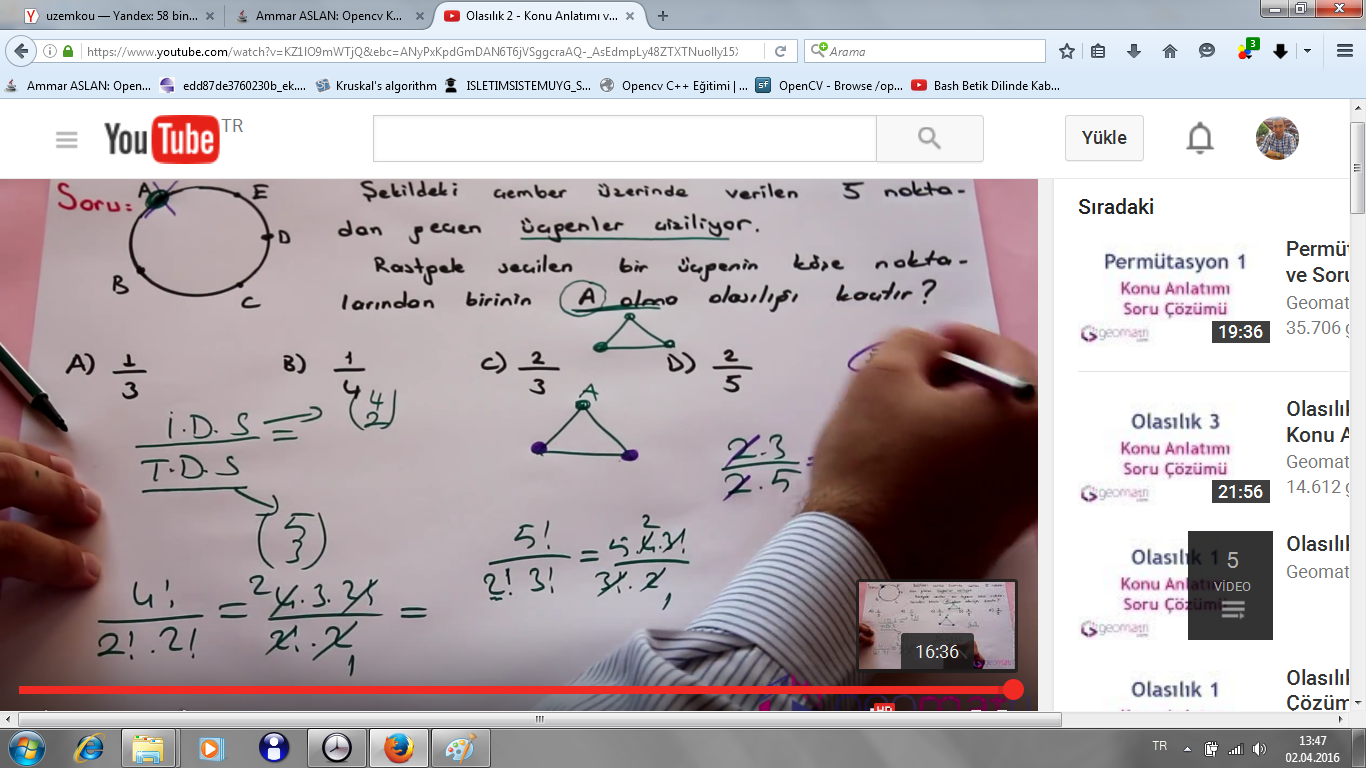 uzemkou — Yandex: 58 bin...
Ammar ASLAN: Opencv K...
Olasılık 2 - Konu Anlatımı v...
Arama
3
Ammar ASLAN: Open...
edd87de3760230b_ek....
Kruskal's algorithm
ISLETIMSISTEMUYG_S...
Opencv C++ Eğitimi | ...
OpenCV - Browse /op...
Bash Betik Dilinde Kab...
YouTube TR
Yükle
Soru:
Şekildeki çember üzerinde verilen 5 nokta-
dan geçen üçgenler çiziliyor.
Rastgele seçilen bir üçgenin köşe nokta-
larından birinin A olma olasılığı kaçtır?
A E
D
B C
A) 1/3 B) 1/4 C) 2/3 D) 2/5
İ.D.S
T.D.S
(4 2)
(5 3)
A
2.3
2.5
=
4!
2!.2!
= 2 4.3.2!
2!.2 1
=
5!
2!.3!
= 5.4 2.3!
3!.2 1
16:36
HD
Sıradaki
Permütasyon 1
Konu Anlatımı
Soru Çözümü
geomatri
19:36
Permüt
ve Soru
Geomat
35.706 g
Olasılık 3
Konu Anlatımı
Soru Çözümü
geomatri
21:56
Olasılık
Konu A
Geomat
14.612 g
Olasılık 1
Konu Anlatımı
Soru Çözümü
geomatri
5
VİDEO
Olasılık
Geomat
Olasılık 1
Olasılık
Çözüm
TR
13:47
02.04.2016